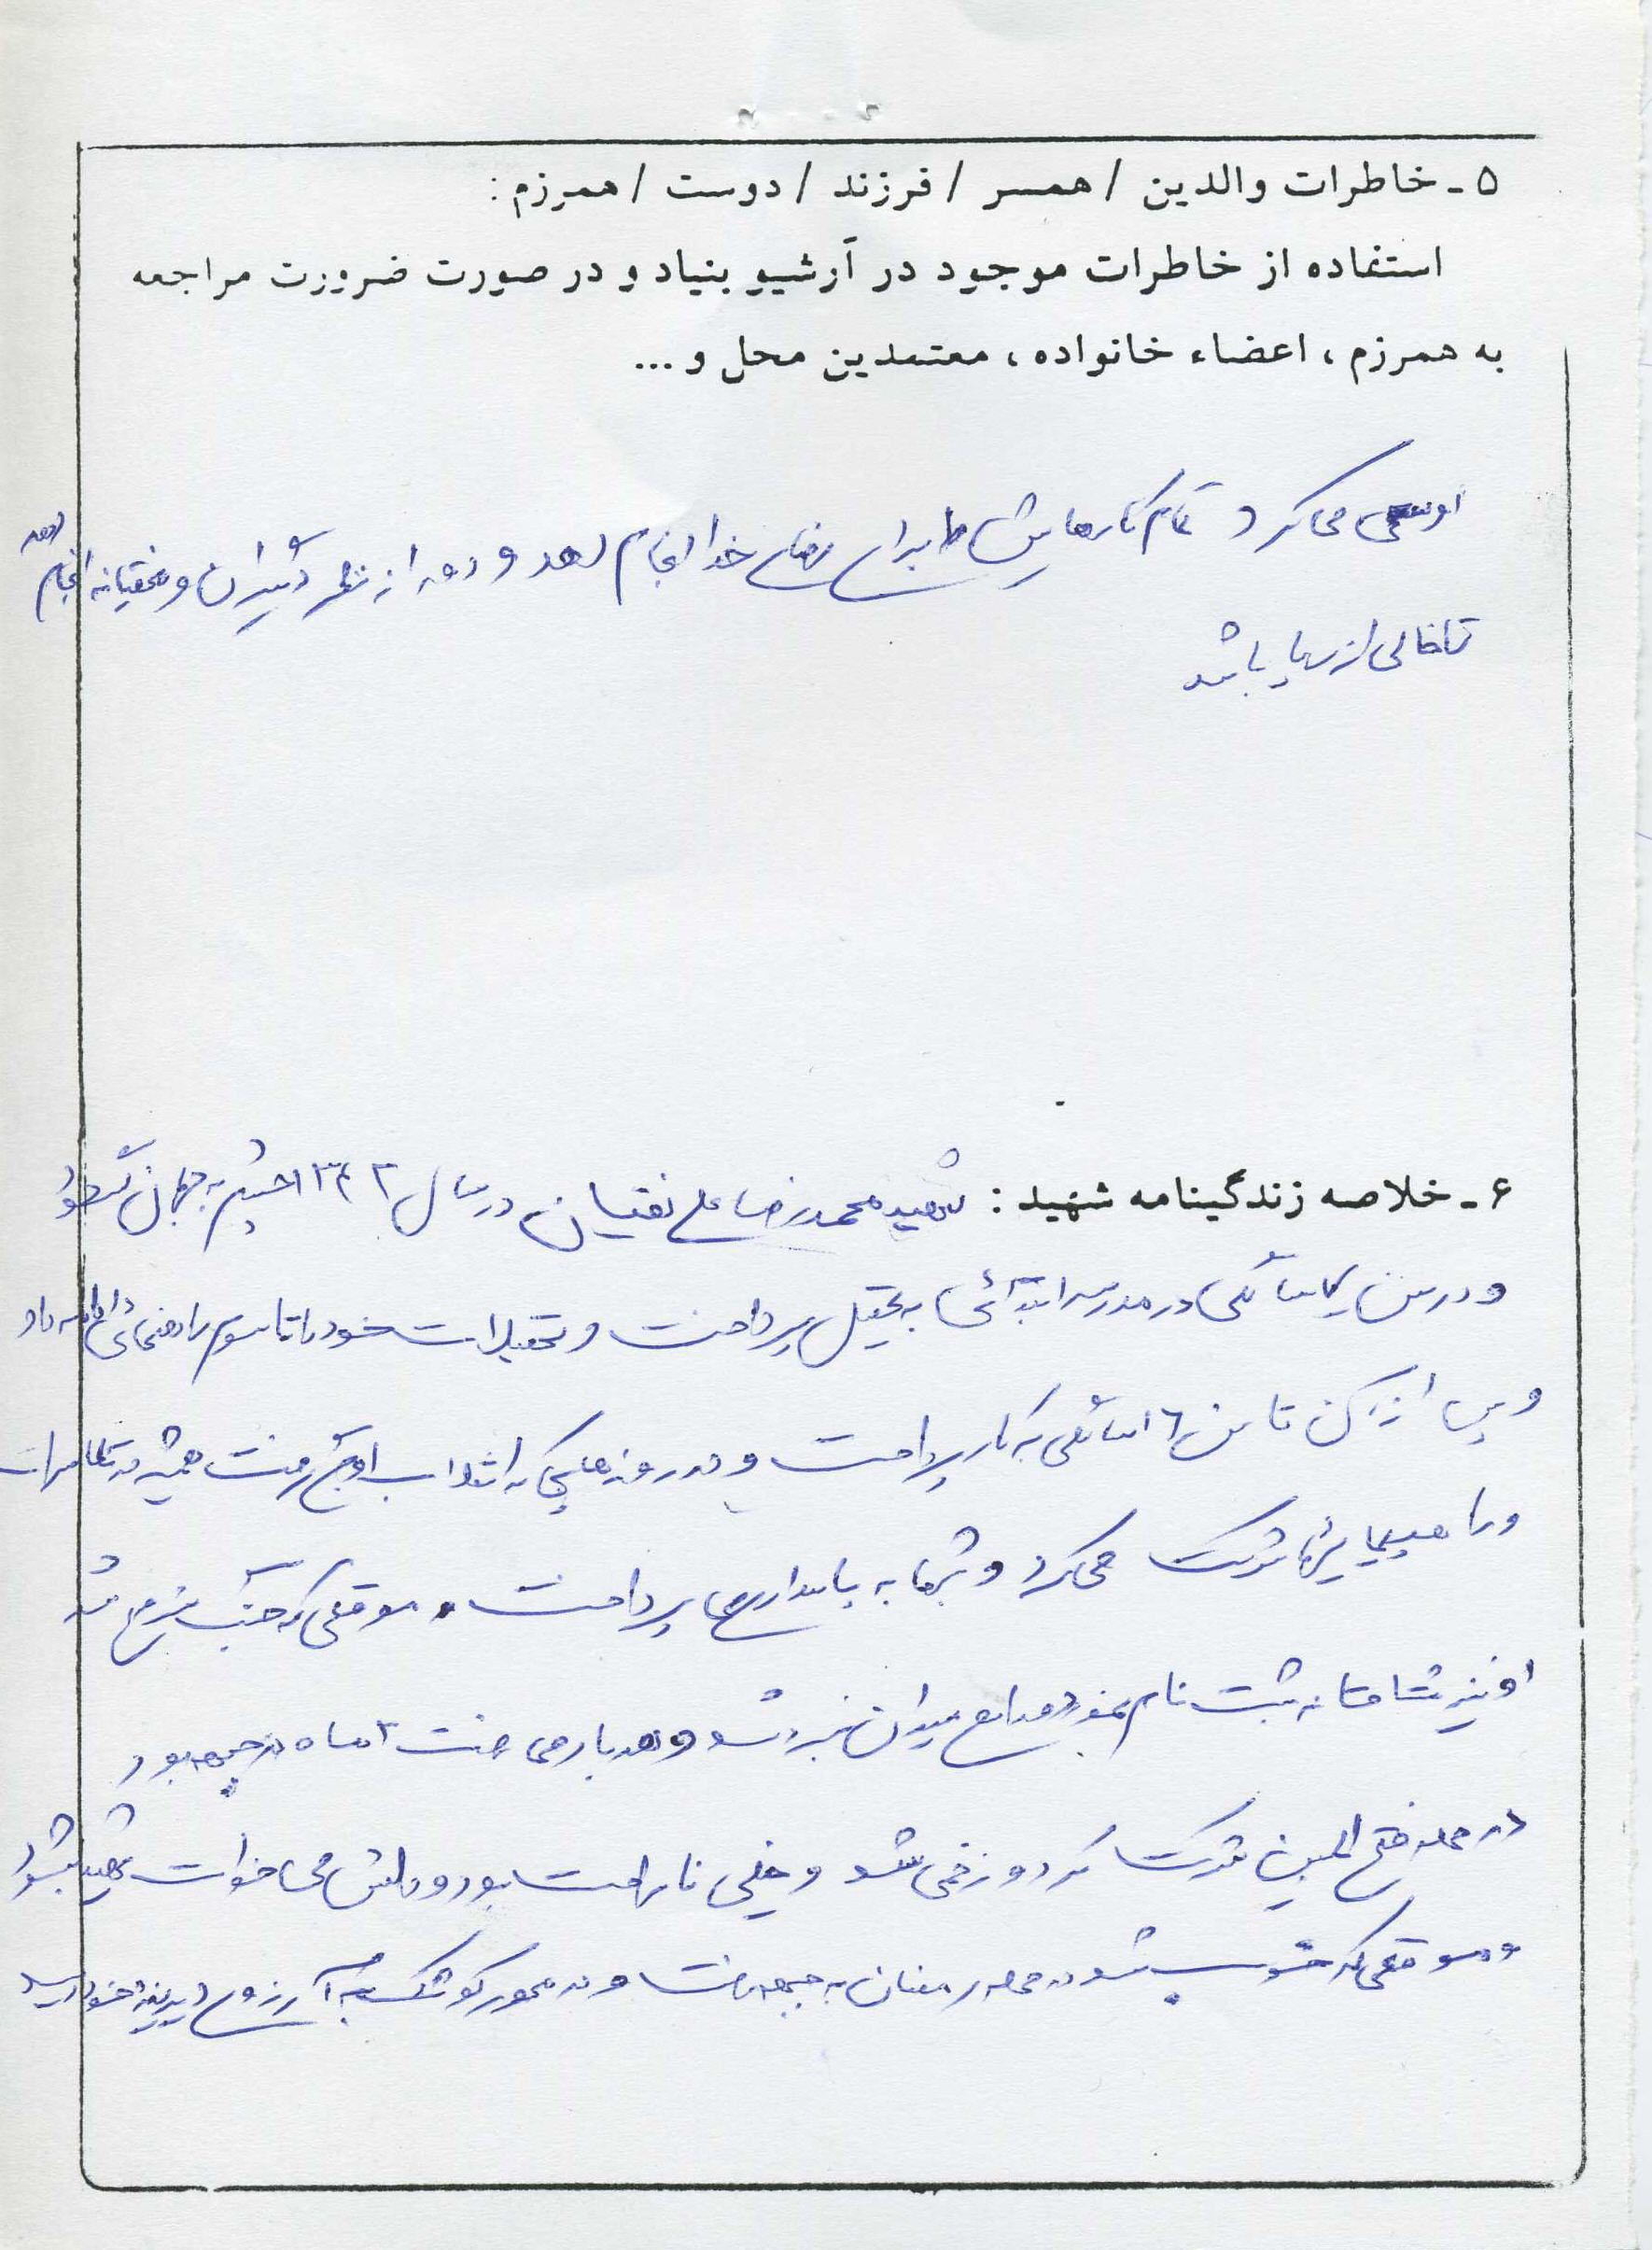 ۵ ـ خاطرات والدین / همسر / فرزند / دوست / همرزم :
استفاده از خاطرات موجود در آرشیو بنیاد و در صورت ضرورت مراجعه
به همرزم ، اعضاء خانواده ، معتمدین محل و ...
او سعی می کرد تمام کارهایش را برای رضای خدا انجام دهد و دور از نظر دیگران و مخفیانه انجام دهد
تا خالی از ریا باشد
۶ ـ خلاصه زندگینامه شهید : شهید محمدرضا علی نقیان در سال ۱۳۴۲ چشم به جهان گشود
و در سن سالگی در مدرسه ابتدائی به تحصیل پرداخت و تحصیلات خود را تا سوم راهنمائی ادامه داد
و پس از آن تا سن ۱۶ سالگی به کار پرداخت و در روزهایی که انقلاب اوج گرفت همیشه در تظاهرات
و راهپیمایی‌ها شرکت می کرد و شبها به پاسداری می پرداخت . موقعی که جنگ شروع شد
او نیز مشتاقانه ثبت نام نمود و عازم میدان نبرد شد و هر بار می رفت ۳ ماه در جبهه بود
در حمله فتح المبین شرکت کرد و زخمی شد و خیلی ناراحت بود و دلش می خواست شهید بشود
و موقعی که خوب شد در حمله رمضان به جبهه رفت و در محور کوشک به آرزوی دیرینه خود رسید